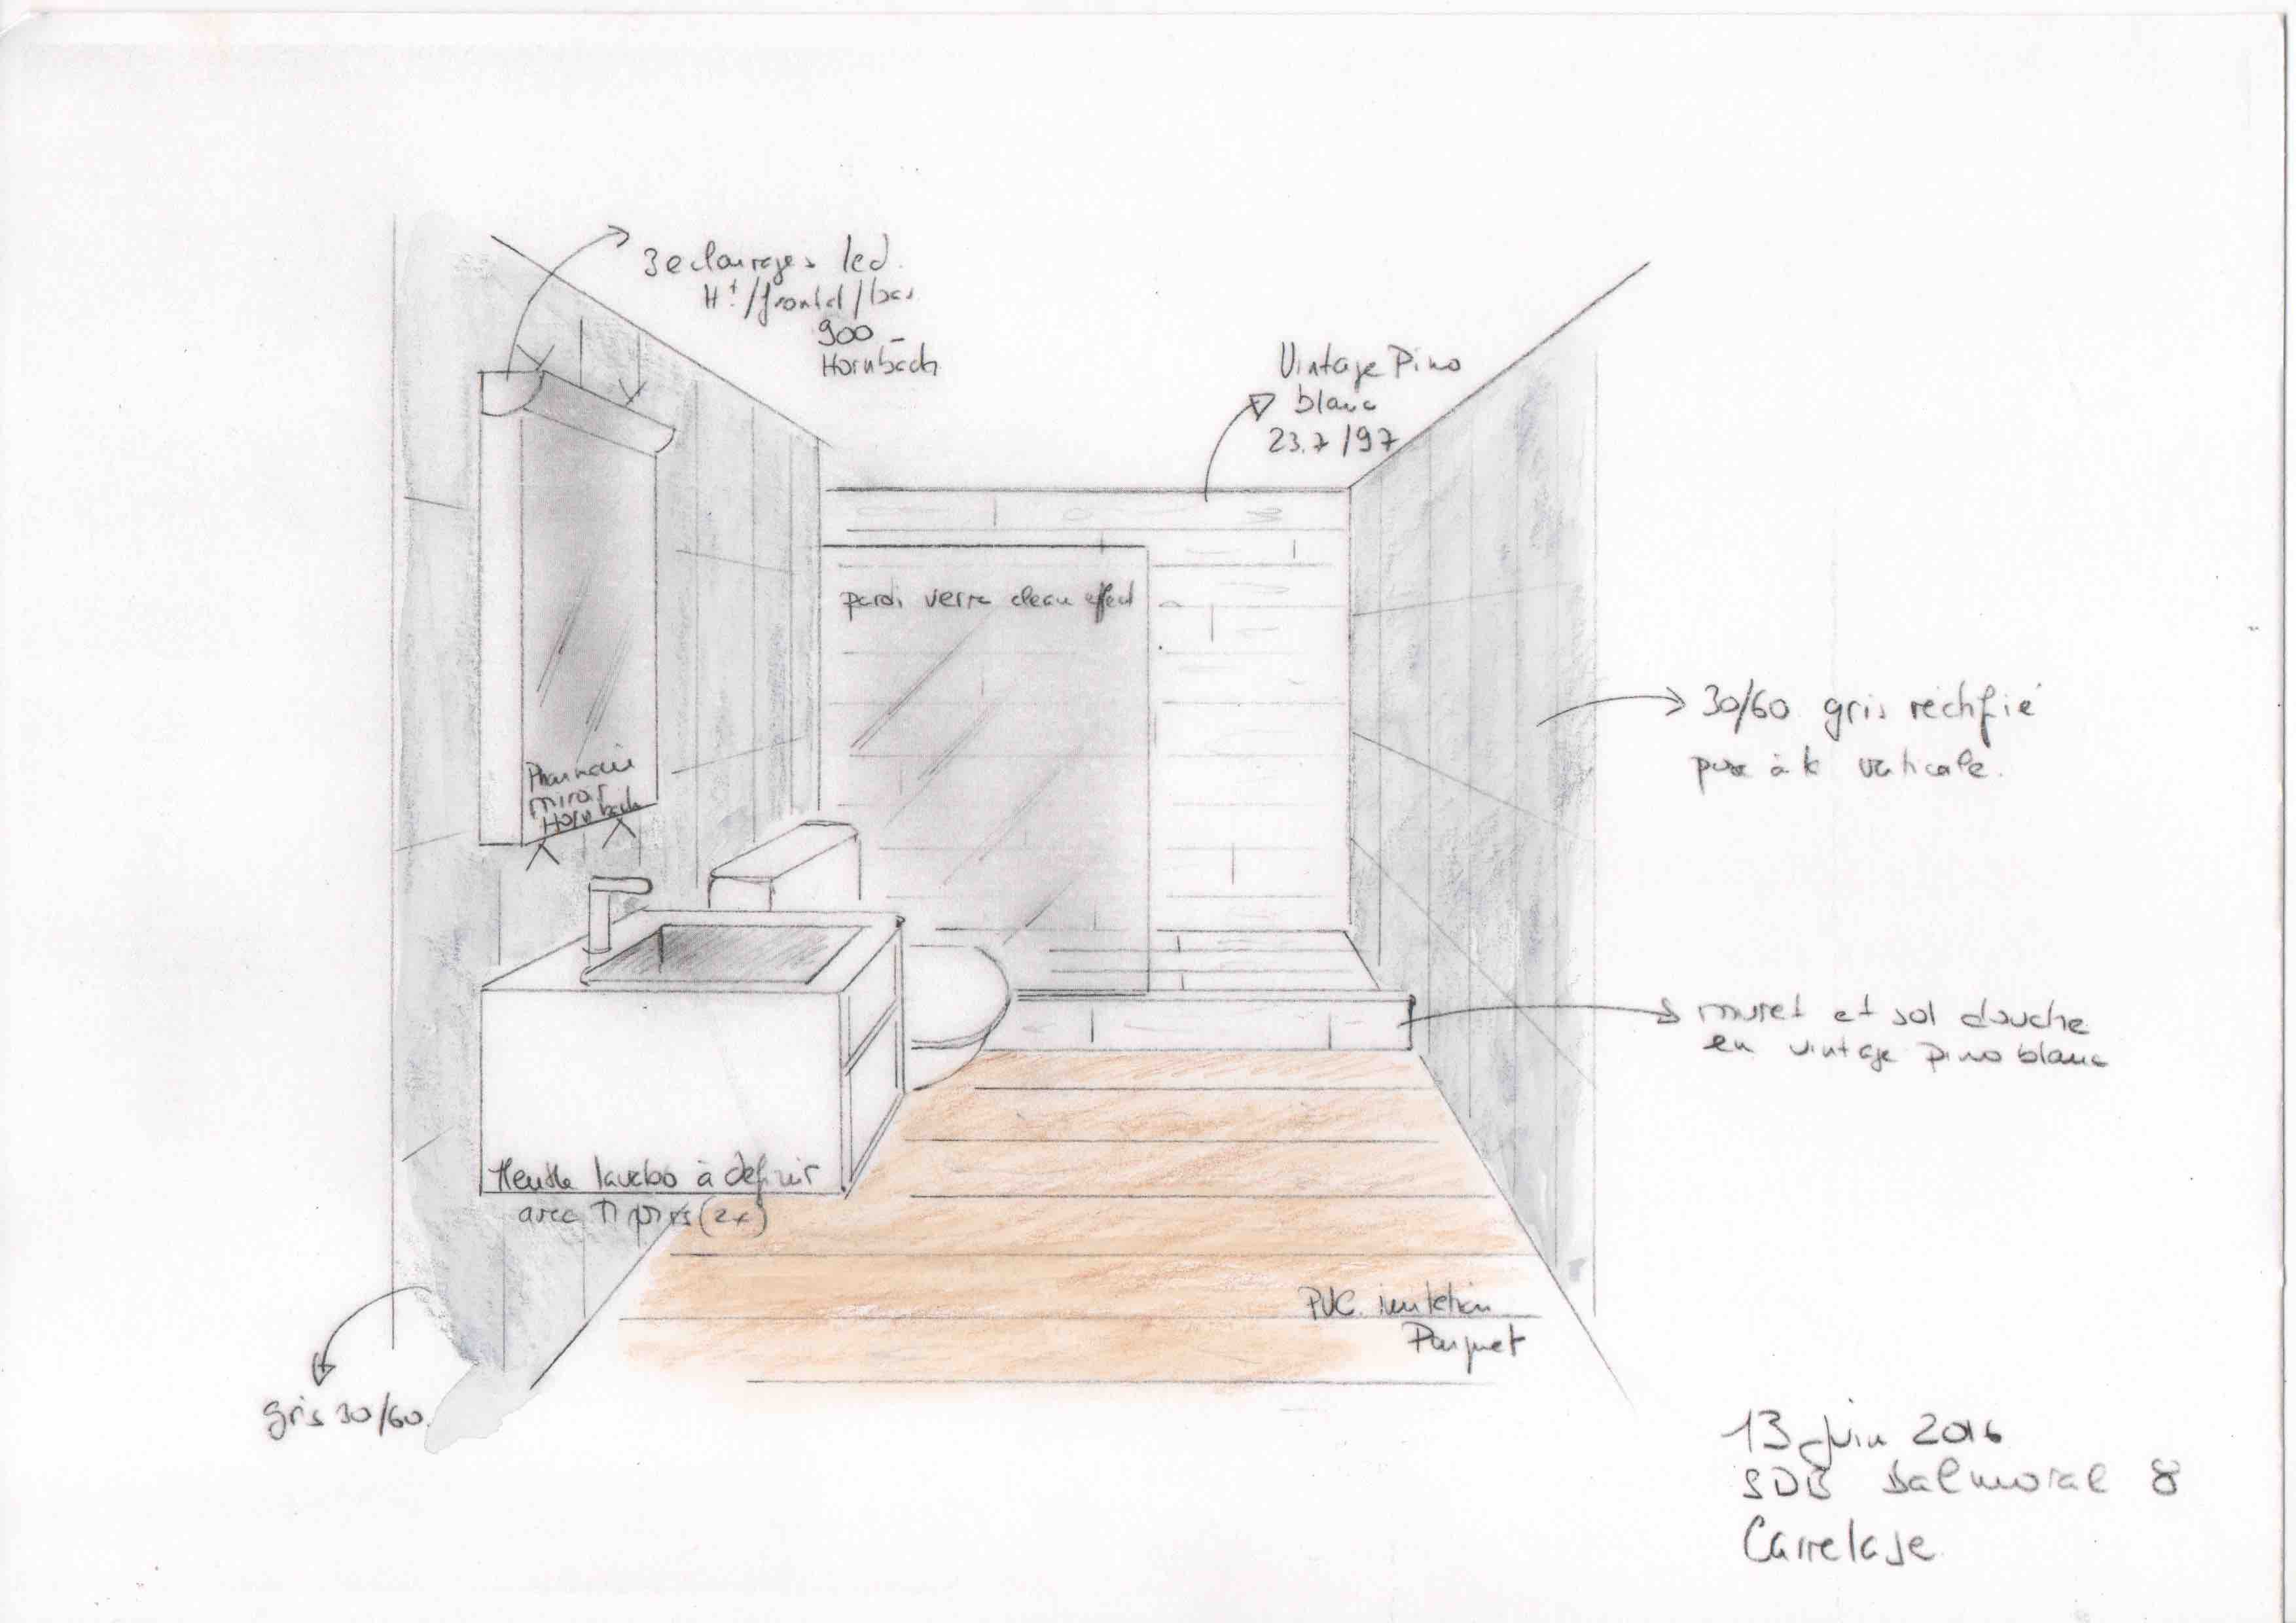 3 eclairages led.
Ht/frontal/bas
900 –
Hornbach
Vintage Pino
blanc
23.7/97
paroi verre clean effect
30/60 gris rectifié
pose à la verticale.
Pharmacie
miroir
Hornbach
muret et sol douche
en vintage pino blanc
Meuble lavabo à définir
avec Tiroirs (2x)
PVC imitation
Parquet
gris 30/60.
13 Juin 2016
SDB Balmoral 8
Carrelage